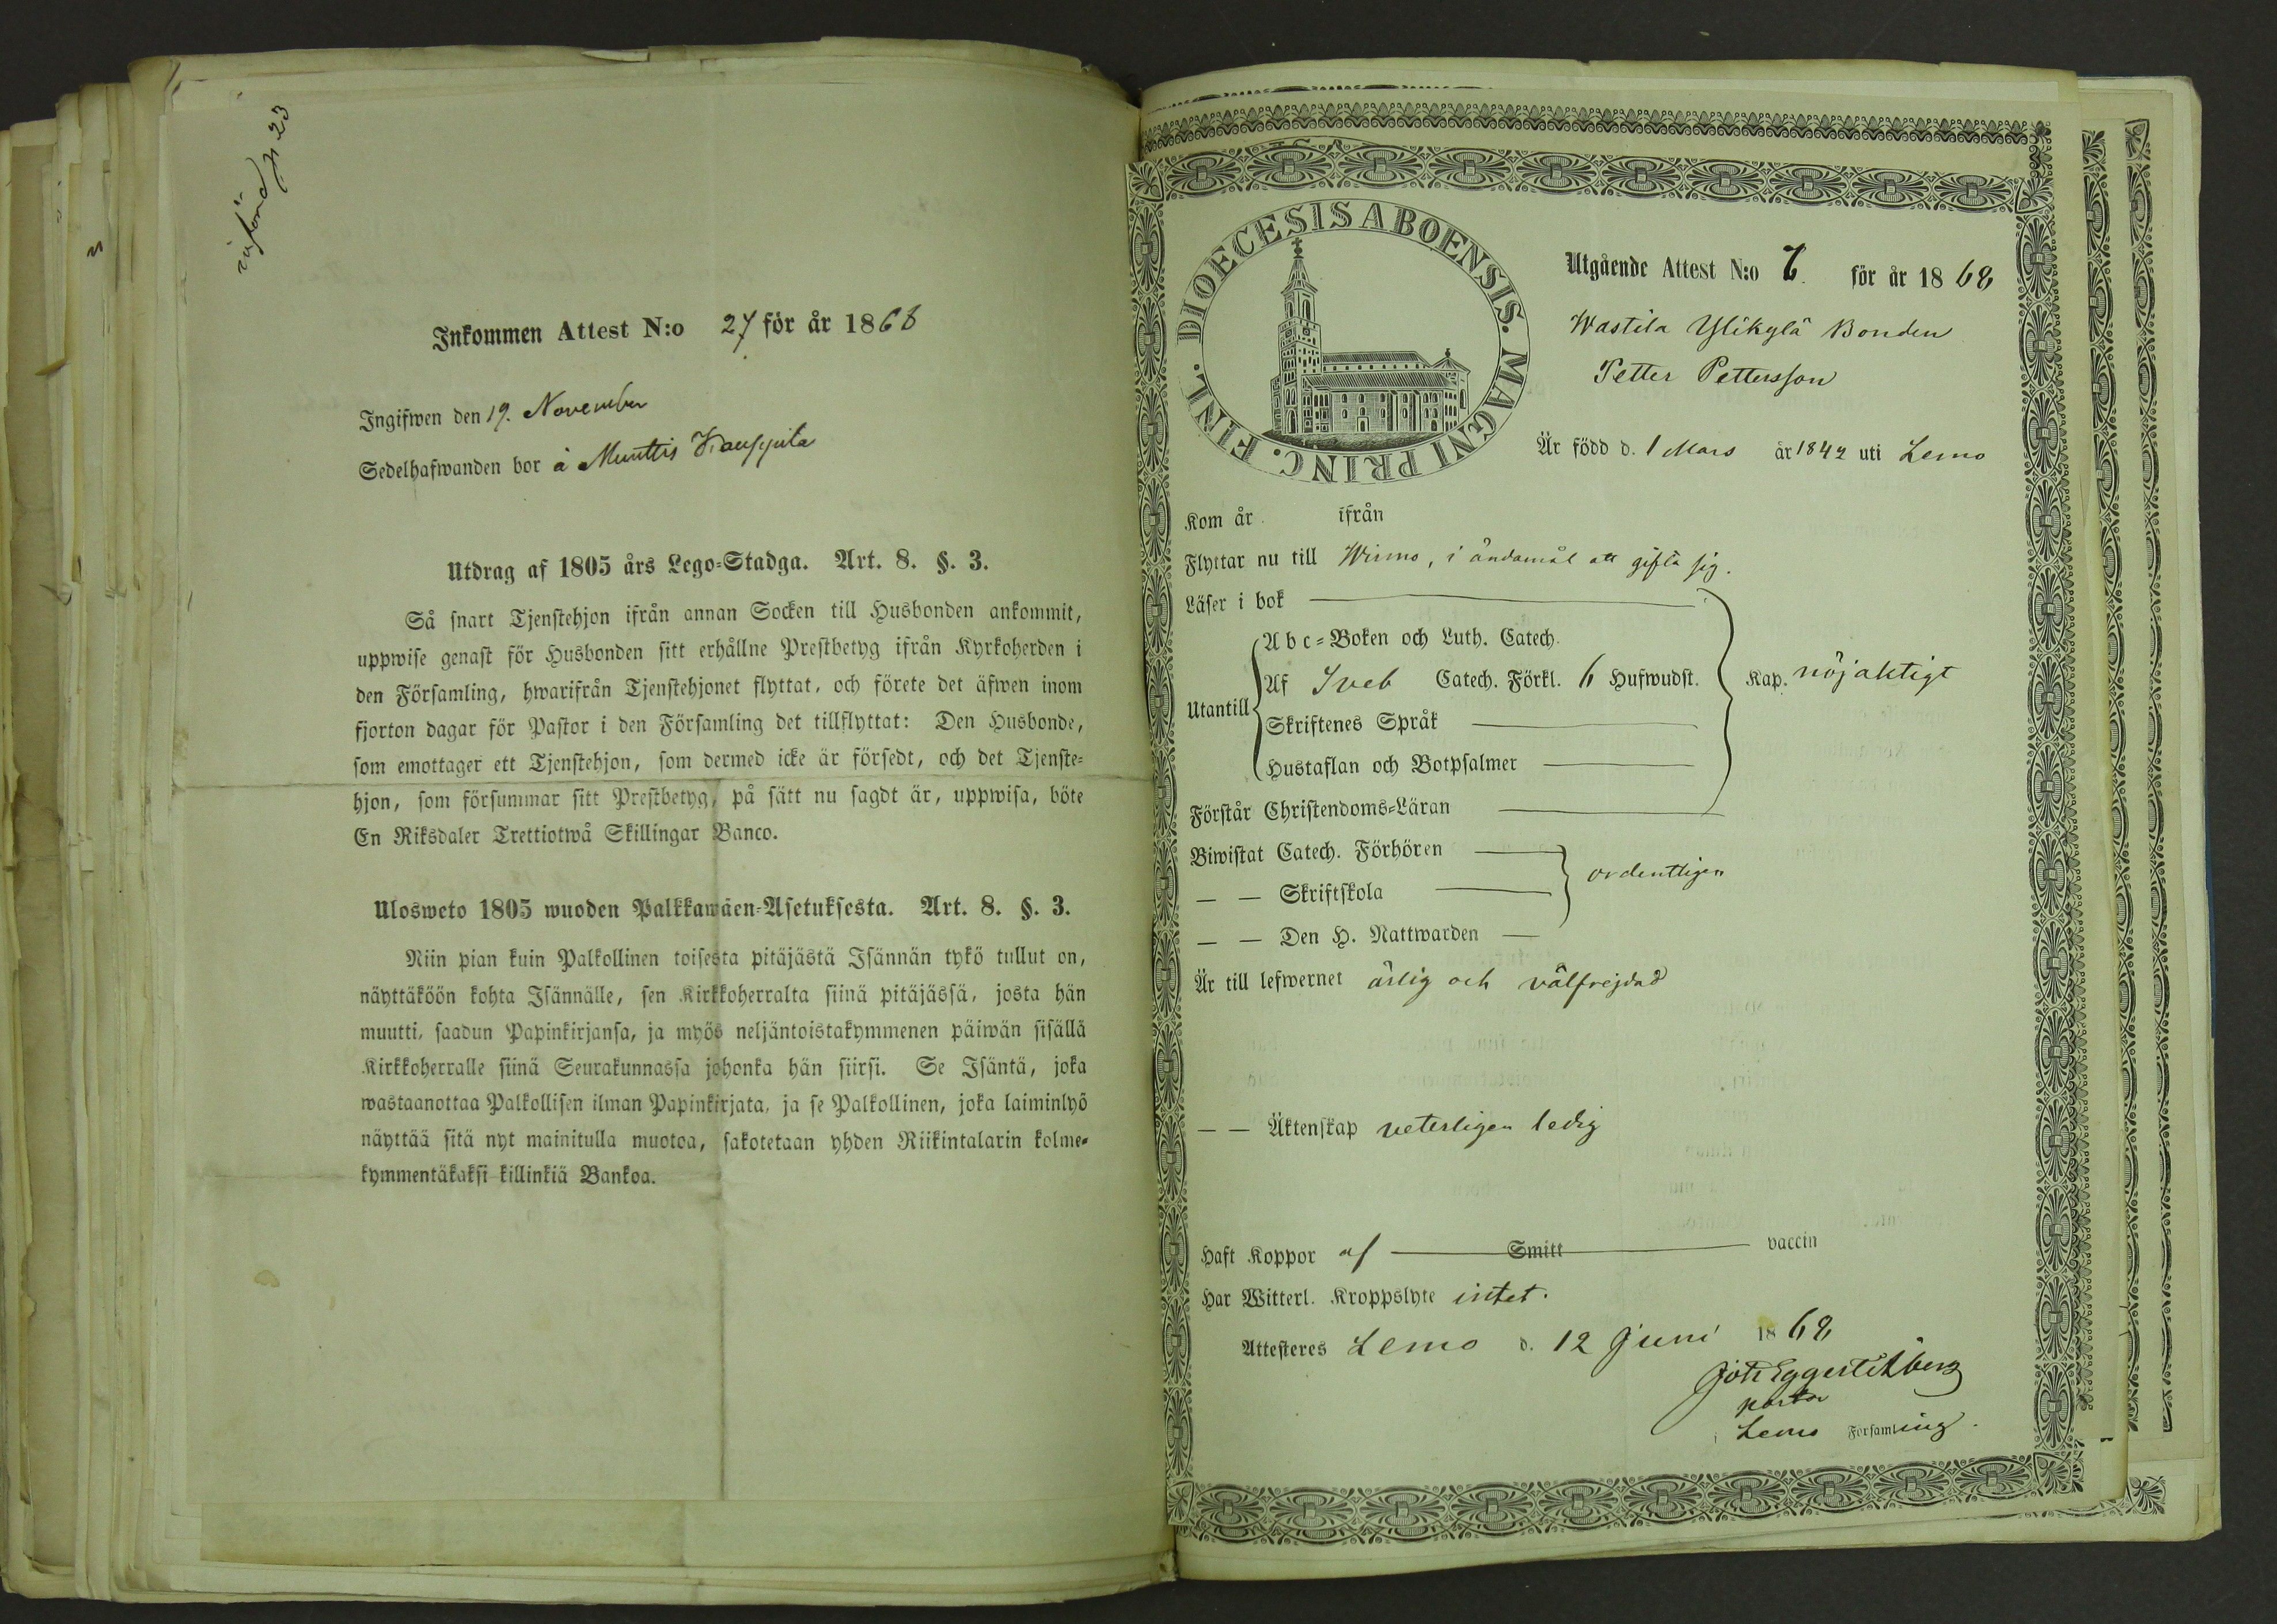 införd p 23
Inkommen Attest N:o 27 för år 1868
Ingifwen den 19. November
Sedelhafwanden bor å Munttis Kauppila
Utdrag af 1805 års Lego-Stadga. Art. 8. §. 3.
Så snart Tjenstehjon ifrån annan Socken till Husbonden ankommit,
uppwise genast för Husbonden sitt erhållne Prestbetyg ifrån Kyrkoherden i
den Församling, hwarifrån Tjenstehjonet flyttat, och förete det äfwen inom
fjorton dagar för Pastor i den Församling det tillflyttat: Den Husbonde,
som emottager ett Tjenstehjon, som dermed icke är försedt, och det Tjenste-
hjon, som försummar sitt Prestbetyg, på sätt nu sagdt är, uppwisa, böte
En Riksdaler Trettiotwå Skillingar Banco.
Ulosweto 1805 wuoden Palkkawäen-Asetuksesta. Art. 8. §. 3.
Niin pian kuin Palkollinen toisesta pitäjästä Isännän tykö tullut on,
näyttäköön kohta Isännälle, sen Kirkkoherralta siinä pitäjässä, josta hän
muutti, saadun Papinkirjansa, ja myös neljäntoistakymmenen päiwän sisällä
Kirkkoherralle siinä Seurakunnassa johonka hän siirsi. Se Isäntä, joka
wastaanottaa Palkollisen ilman Papinkirjata, ja se Palkollinen, joka laiminlyö
näyttää sitä nyt mainitulla muotoa, sakotetaan yhden Riikintalarin kolme-
kymmentäkaksi killinkiä Bankoa.
DIOECESIS ABOENSIS. MAGNI PRINC. FINL.
Utgående Attest N:o 7. för år 1868
Wastila Ylikylä Bonden
Petter Pettersson
Är född d. 1 Mars år 1842 uti Lemo
Kom år ifrån
Flyttar nu till Wirmo, i ändamål att gifta sig.
Läser i bok
Abc-Boken och Luth. Catech.
Utantill Af Sveb Catech. Förkl. 6 Hufwudst. Kap. nöjaktigt
Skriftenes Språk
Hustaflan och Botpsalmer
Förstår Christendoms-Läran
Biwistat Catech. Förhören
— — Skriftskola ordentligen
— — Den H. Nattwarden
Är till lefwernet ärlig och välfrejdad
— — Äktenskap veterligen ledig
Haft Koppor af Smitt vaccin
Har Witterl. Kroppslyte intet.
Attesteres Lemo d. 12 Juni 1868
Joh Eggert Ekberg
pastor
i Lemo Församling.